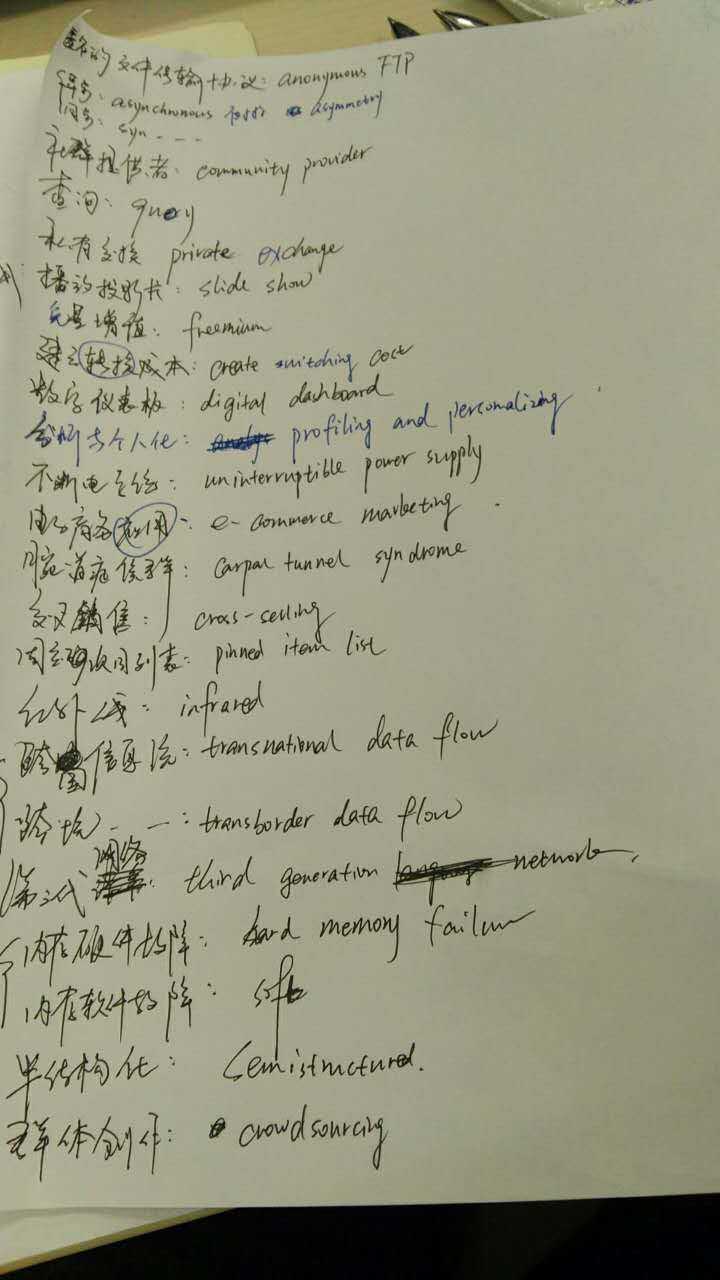 匿名的文件传输协议: anonymous FTP
异步: asynchronous 不对称 asymmetry
同步: syn - - -
社群提供者: community provider
查询: query
私有交换 private exchange
播放投影片: slide show
免费增值: freemium
建立转换成本: create switching cost
数字仪表板: digital dashboard
分析与个人化: profiling and personalizing
不断电系统: uninterruptible power supply
电子商务应用: e-commerce marketing
腕道症候群: carpal tunnel syndrome
交叉销售: cross-selling
固定项目列表: pinned item list
红外线: infrared
跨国信息流: transnational data flow
跨境 - - -: transborder data flow
第三代网络: third generation network
内存硬件故障: hard memory failure
内存软件故障: soft
半结构化: Semistructured.
群体创作: crowdsourcing